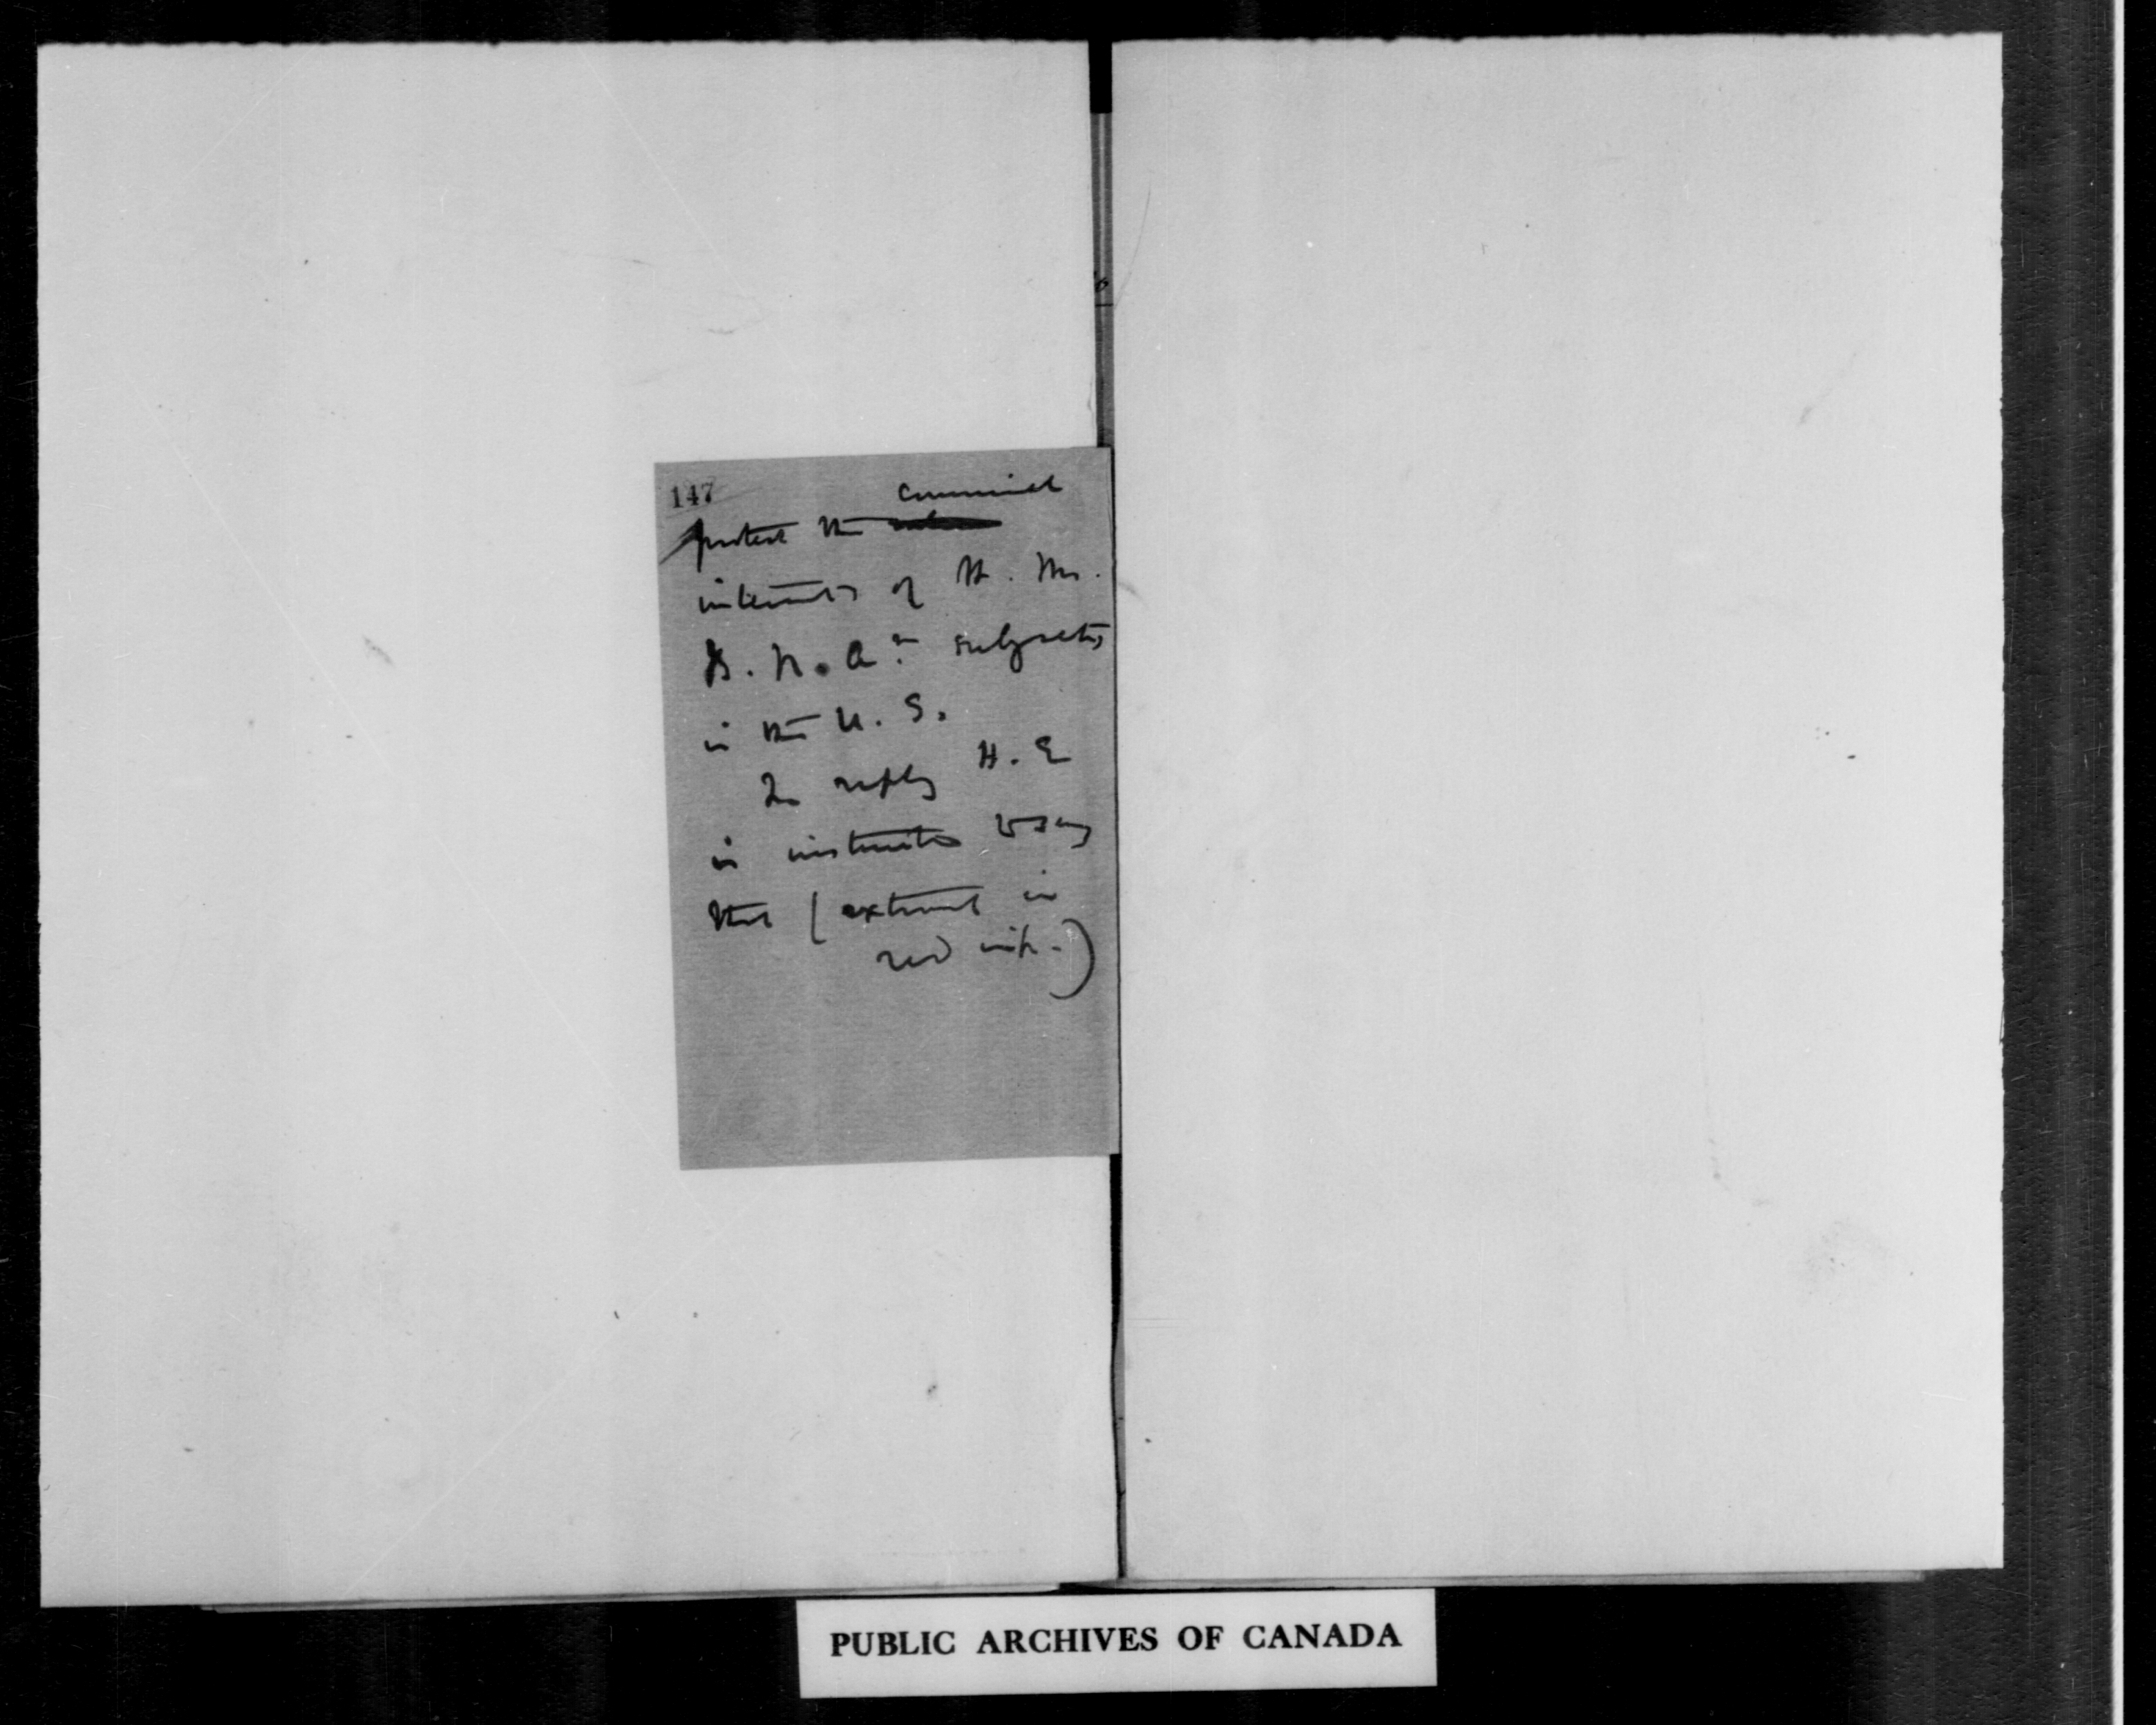 147
commercial
protect the
interests of H. M's.
B. N. A.n subjects
in the U. S.
In reply H. E
is instructed to say
that (extract in
red ink.)
PUBLIC ARCHIVES OF CANADA